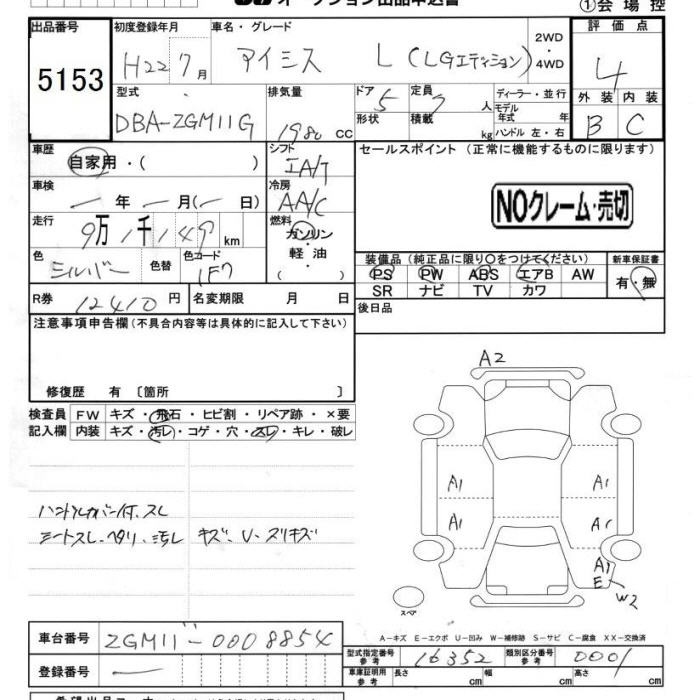 オークション出品申込書
①会場控
出品番号 初度登録年月 車名・グレード 2WD 評価点
5153 H22 7月 アイシス L (LGエディション) ・4WD 4
型式 排気量 ドア 5 定員 7 人 ディーラー・並行 外装 内装
DBA-ZGM11G 1980 cc 形状 積載 kg モデル年式 年 B C
ハンドル 左・右
車歴 シフト セールスポイント (正常に機能するものに限ります)
自家用・( ) IA/T
車検 ー 年 ー 月(ー 日) 冷房 AA/C NOクレーム・売切
走行 9万 1千 149 km 燃料 ガソリン
軽油
( )
色 シルバー 色替 色コード 1F7
装備品 (純正品に限り○をつけてください) 新車保証書
PS PW ABS エアB AW 有・無
SR ナビ TV カワ
R券 12410 円 名変期限 月 日 後日品
注意事項申告欄 (不具合内容等は具体的に記入して下さい)
修復歴 有 〔箇所 〕
A2
検査員 FW キズ・飛石・ヒビ割・リペア跡・×要
記入欄 内装 キズ・汚レ・コゲ・穴・スレ・キレ・破レ
A1 A1
A1 A1
ハンドルカバー付、スレ
シートスレ・ヘタリ、汚レ キズ、U・スリキズ
A1
E
W2
スペア
A-キズ E-エクボ U-凹み W-補修跡 S-サビ C-腐食 XX-交換済
車台番号 ZGM11-0008854
型式指定番号 参考 16352 類別区分番号 参考 0001
登録番号 ー 車庫証明用 参考 長さ cm 幅 cm 高さ cm